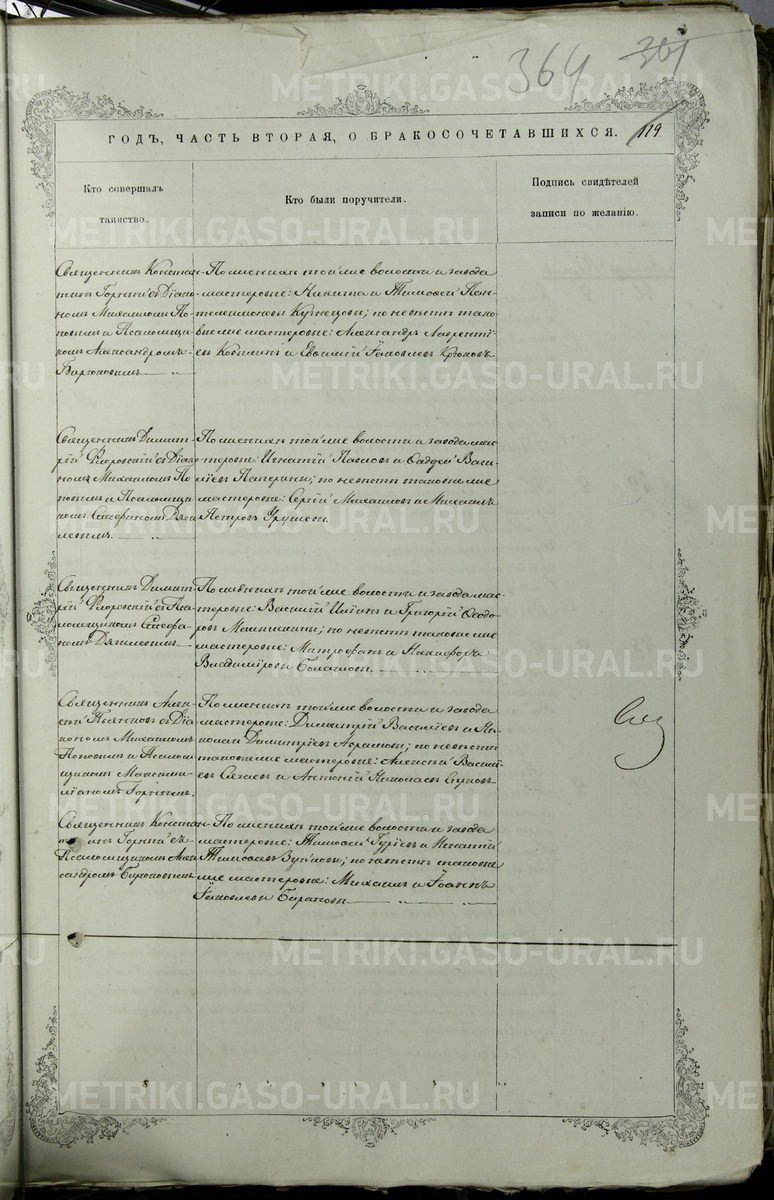 364 361
119
ГОДЪ, ЧАСТЬ ВТОРАЯ, О БРАКОСОЧЕТАВШИХСЯ.
Кто совершалъ
таинство.
Кто были поручители.
Подпись свидѣтелей
записи по желанію.
Священникъ Констан-
тинъ Горный съ Діако-
номъ Михаиломъ По-
повымъ и Псаломщи-
комъ Александромъ
Бирюковымъ
По женихѣ той же волости и завода
мастеровые: Никита и Тимоѳей Пан-
телеимоновы Кузнецовы; по невѣстѣ тако-
вые же мастеровые: Александръ Лаврентi-
евъ и Евѳимій Іаковлевъ Крюковъ.
Священникъ Димит-
рій Флоровскій съ Діако-
номъ Михаиломъ По-
повымъ и Псаломщи-
комъ Стефаномъ
По женихѣ той же волости и завода мас-
теровые: Игнатій Павловъ и Ѳаддей Васи-
ліевъ; по невѣстѣ таковые же
мастеровые: Сергій Михаиловъ и Михаилъ
Петровъ
Священникъ Димит-
рій Флоровскій съ Пса-
ломщикомъ Стефа-
номъ
По женихѣ той же волости и завода мас-
теровые: Василій и Григорій Ѳеодо-
ровъ; по невѣстѣ таковые же
мастеровые: Митрофанъ и Никифоръ
Владиміровы
Священникъ Алек-
сѣй съ Діа-
кономъ Михаиломъ
Поповымъ и Псалом-
щикомъ Максими-
ліаномъ Горнымъ.
По женихѣ той же волости и завода
мастеровые: Димитрій Василіевъ и Ни-
колай Димитріевъ; по невѣстѣ
таковые же мастеровые: Алексѣй Василі-
евъ и Антоній Николаевъ
Священникъ Констан-
тинъ Горный съ
Псаломщикомъ Алек-
сандромъ Бирюковымъ
По женихѣ той же волости и завода
мастеровые: Тимоѳей Гуріевъ и Игнатій
Тимоѳеевъ; по невѣстѣ таковые
же мастеровые: Михаилъ и Іоаннъ
Іаковлевы Барановы
METRIKI.GASO-URAL.RU